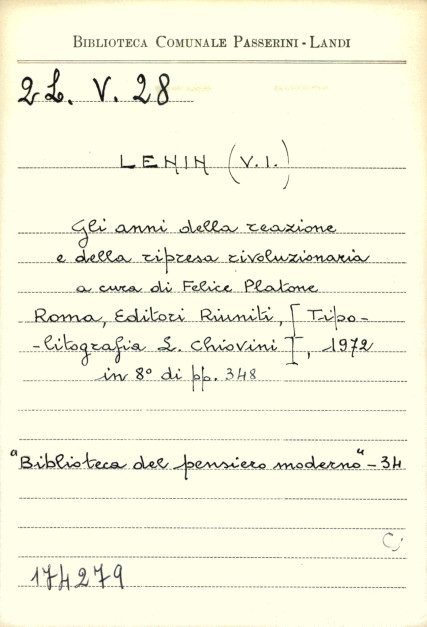 BIBLIOTECA COMUNALE PASSERINI - LANDI
2L. V. 28
LENIN (V.I.)
Gli anni della reazione
e della ripresa rivoluzionaria
a cura di Felice Platone
Roma, Editori Riuniti, [Tipo-
-litografia L. Chiovini], 1972
in 8° di pp. 348
"Biblioteca del pensiero moderno" - 34
C
174279